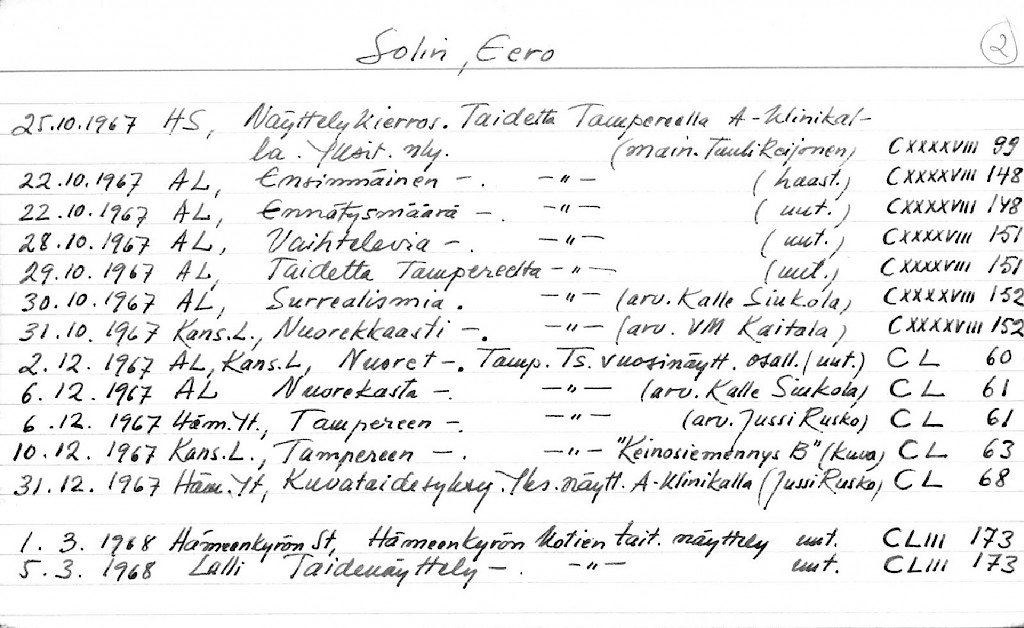 Solin, Eero
2
25.10.1967 HS, Näyttelykierros. Taidetta Tampereella A-Klinikal-
la. Yksit. nly. (main. Tuuli Reijonen) CXXXXVIII 99
22.10.1967 AL, Ensimmäinen -. -"- (haast.) CXXXXVIII 148
22.10.1967 AL, Ennätysmäärä -. -"- (uut.) CXXXXVIII 148
28.10.1967 AL, Vaihtelevia -. -"- (uut.) CXXXXVIII 151
29.10.1967 AL, Taidetta Tampereelta -"- (uut.) CXXXXVIII 151
30.10.1967 AL, Surrealismia. -"- (arv. Kalle Siukola) CXXXXVIII 152
31.10.1967 Kans.L., Nuorekkaasti -. -"- (arv. VM Kaitala) CXXXXVIII 152
2.12.1967 AL, Kans.L, Nuoret -. Tamp. Ts. vuosinäytt. osall. (uut.) CL 60
6.12.1967 AL Nuorekasta -. -"- (arv. Kalle Siukola) CL 61
6.12.1967 Häm.Yt., Tampereen -. -"- (arv. Jussi Rusko) CL 61
10.12.1967 Kans.L., Tampereen -. -"- "Keinosiemennys B" (kuva) CL 63
31.12.1967 Häm.Yt, Kuvataidesyksy. Yks.näytt. A-Klinikalla (Jussi Rusko) CL 68
1.3.1968 Hämeenkyrön St, Hämeenkyrön Kotien tait. näyttely uut. CLIII 173
5.3.1968 Lalli Taidenäyttely -. -"- uut. CLIII 173